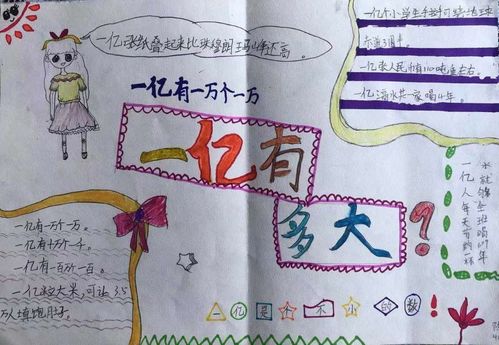 一亿张纸叠起来比珠穆朗玛峰还高。
一亿有一万个一万
一亿有
多大?
一亿个小学生手拉手可绕地球
赤道3圈半。
一亿张人民币有100吨左右。
一亿滴水共一家喝4年。
一亿有一万个一万。
一亿有十万个一千。
一亿有一百万个一百。
一亿粒大米,可让35
万人填饱肚子。
一亿人每天节约一杯
水就够全班喝
一亿是个不小的数!